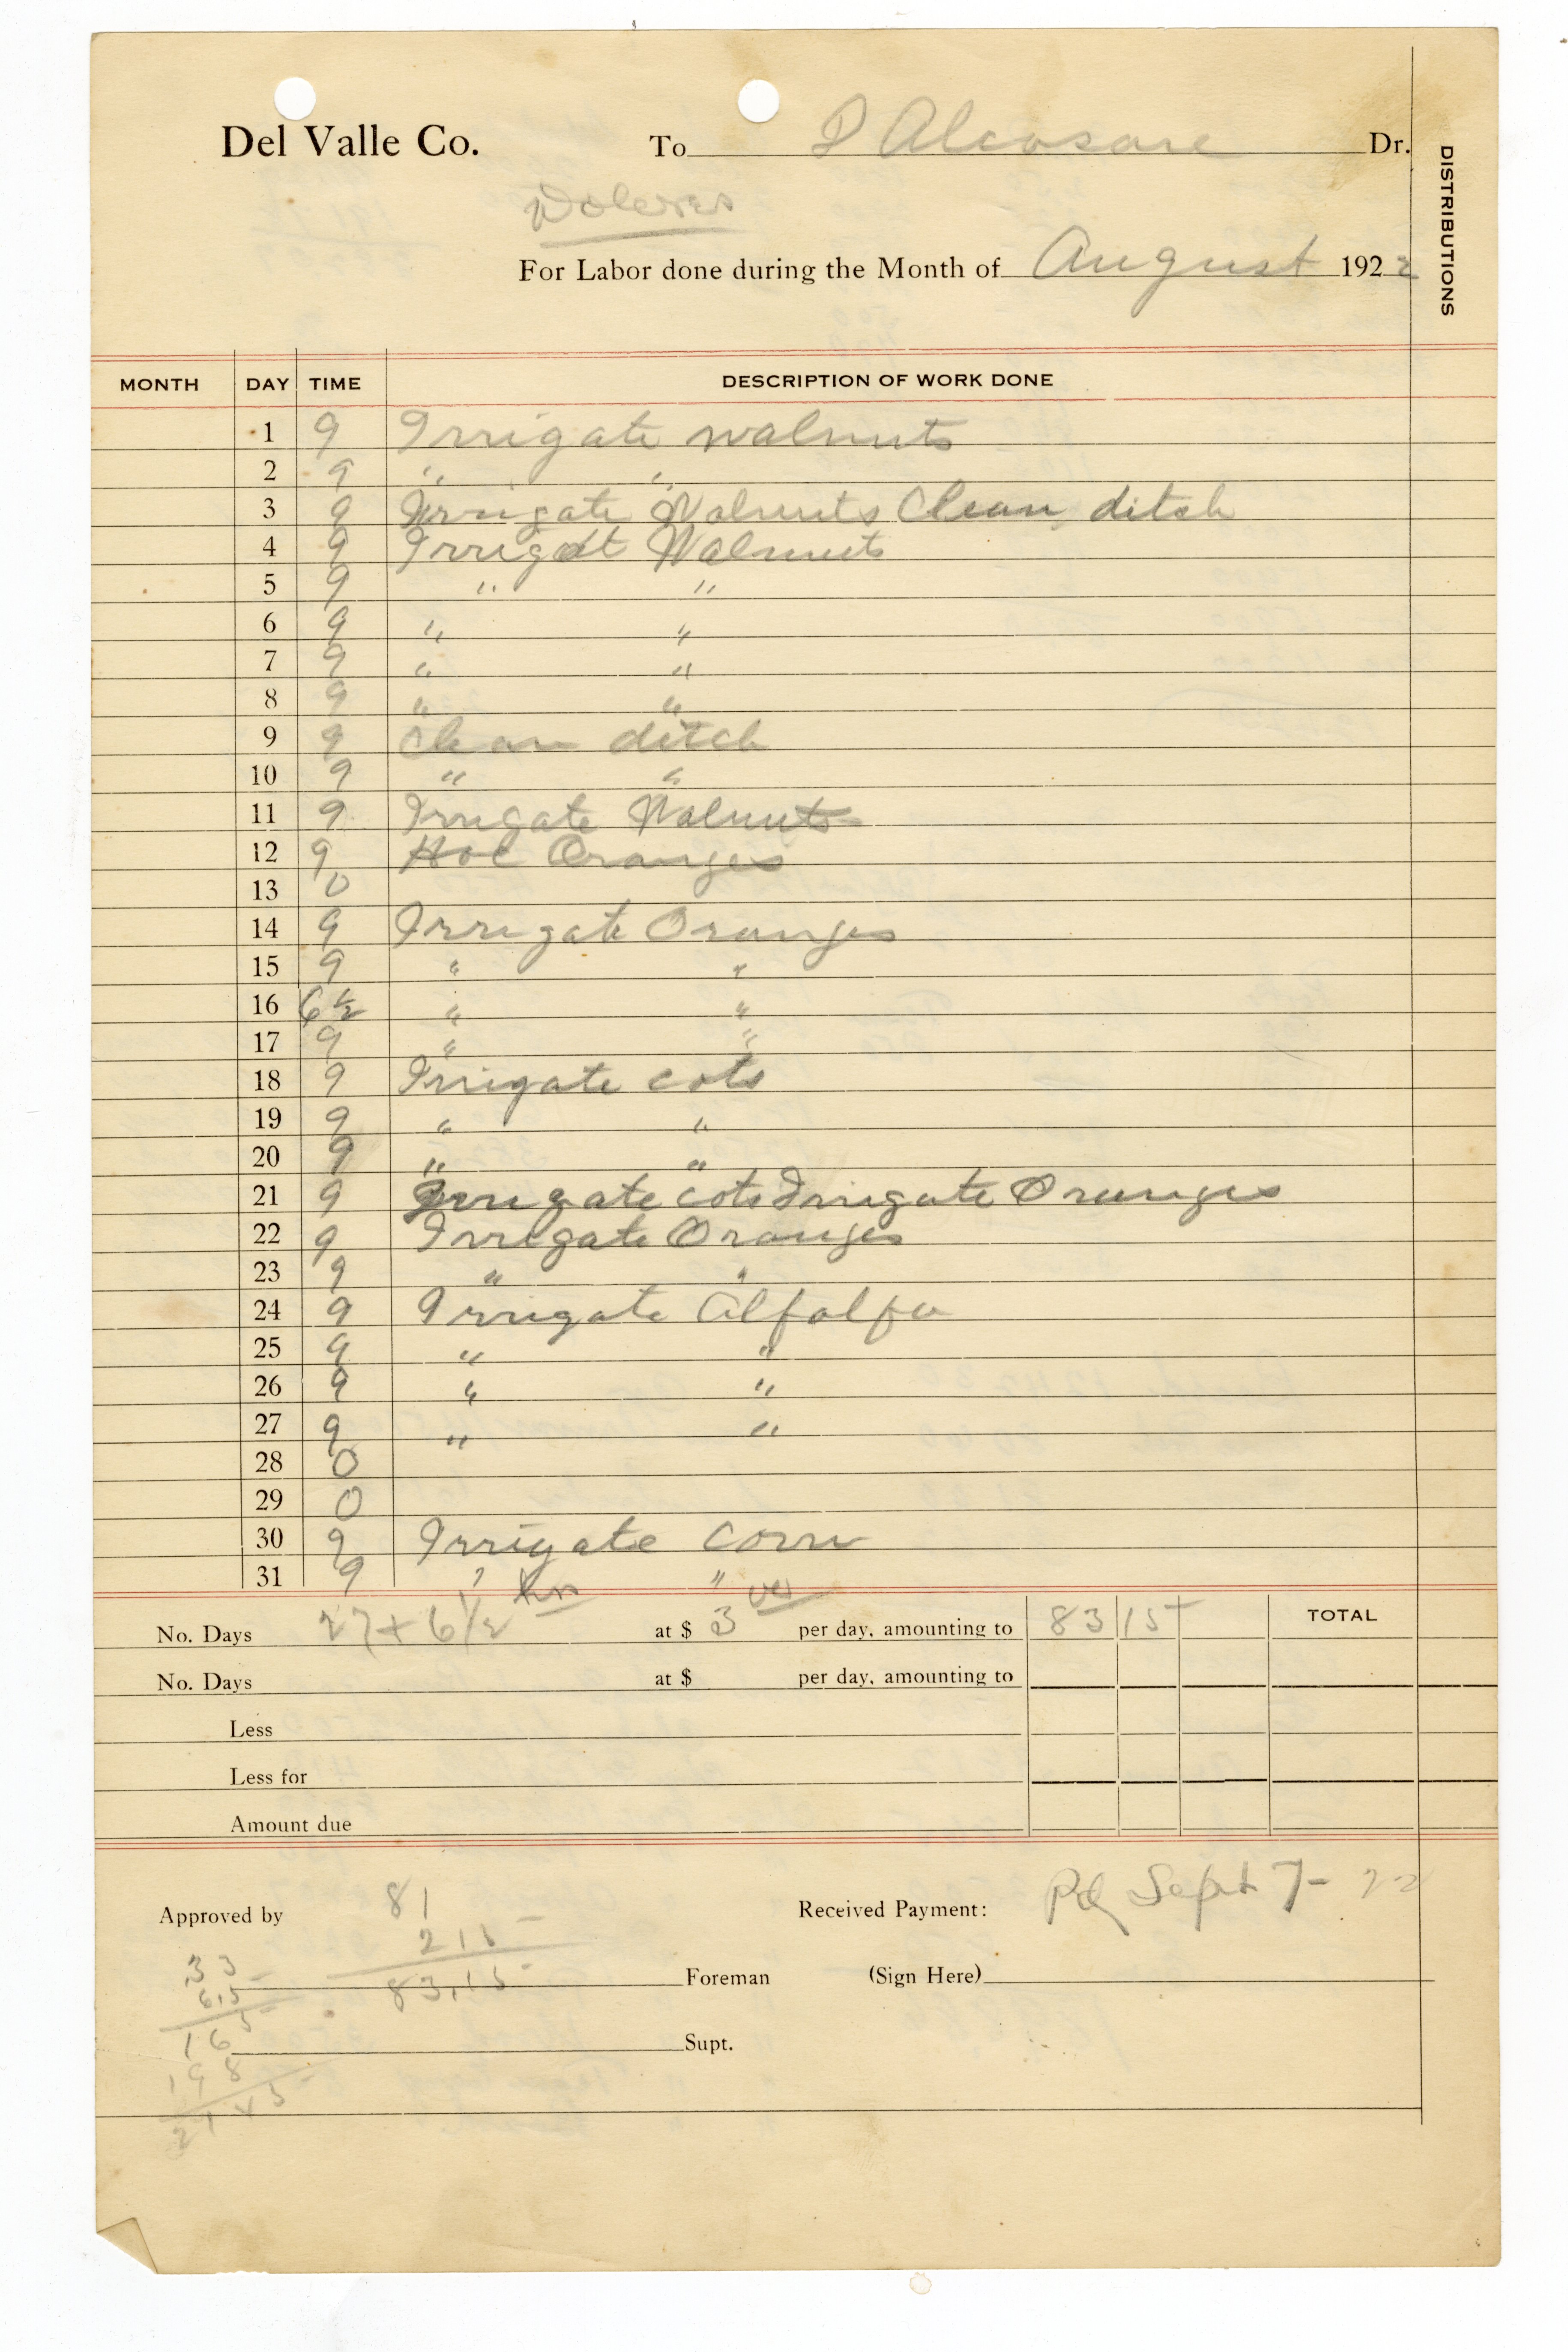 Del Valle Co. To D Alcosare Dr.
Dolores
For Labor done during the Month of August 1922
DISTRIBUTIONS
MONTH DAY TIME DESCRIPTION OF WORK DONE
1 9 Irrigate walnuts
2 9 " "
3 9 Irrigate Walnuts Clean ditch
4 9 Irrigat Walnuts
5 9 " "
6 9 " "
7 9 " "
8 9 " "
9 9 Clean ditch
10 9 " "
11 9 Irrigate Walnuts
12 9 Hoe Oranges
13 0
14 9 Irrigate Oranges
15 9 " "
16 6 1/2 " "
17 9 " "
18 9 Irrigate cots
19 9 " "
20 9 " "
21 9 Irrigate cots Irrigate Oranges
22 9 Irrigate Oranges
23 9 " "
24 9 Irrigate Alfalfa
25 9 " "
26 9 " "
27 9 " "
28 0
29 0
30 9 Irrigate Corn
31 9 " "
No. Days 27 + 6 1/2 hrs at $ 3 00 per day, amounting to 83 15 TOTAL
No. Days at $ per day, amounting to
Less
Less for
Amount due
Approved by 81 Received Payment: Pd Sept 7 - 22
215
33 83,15 Foreman (Sign Here)
6.5
165 Supt.
198
2145